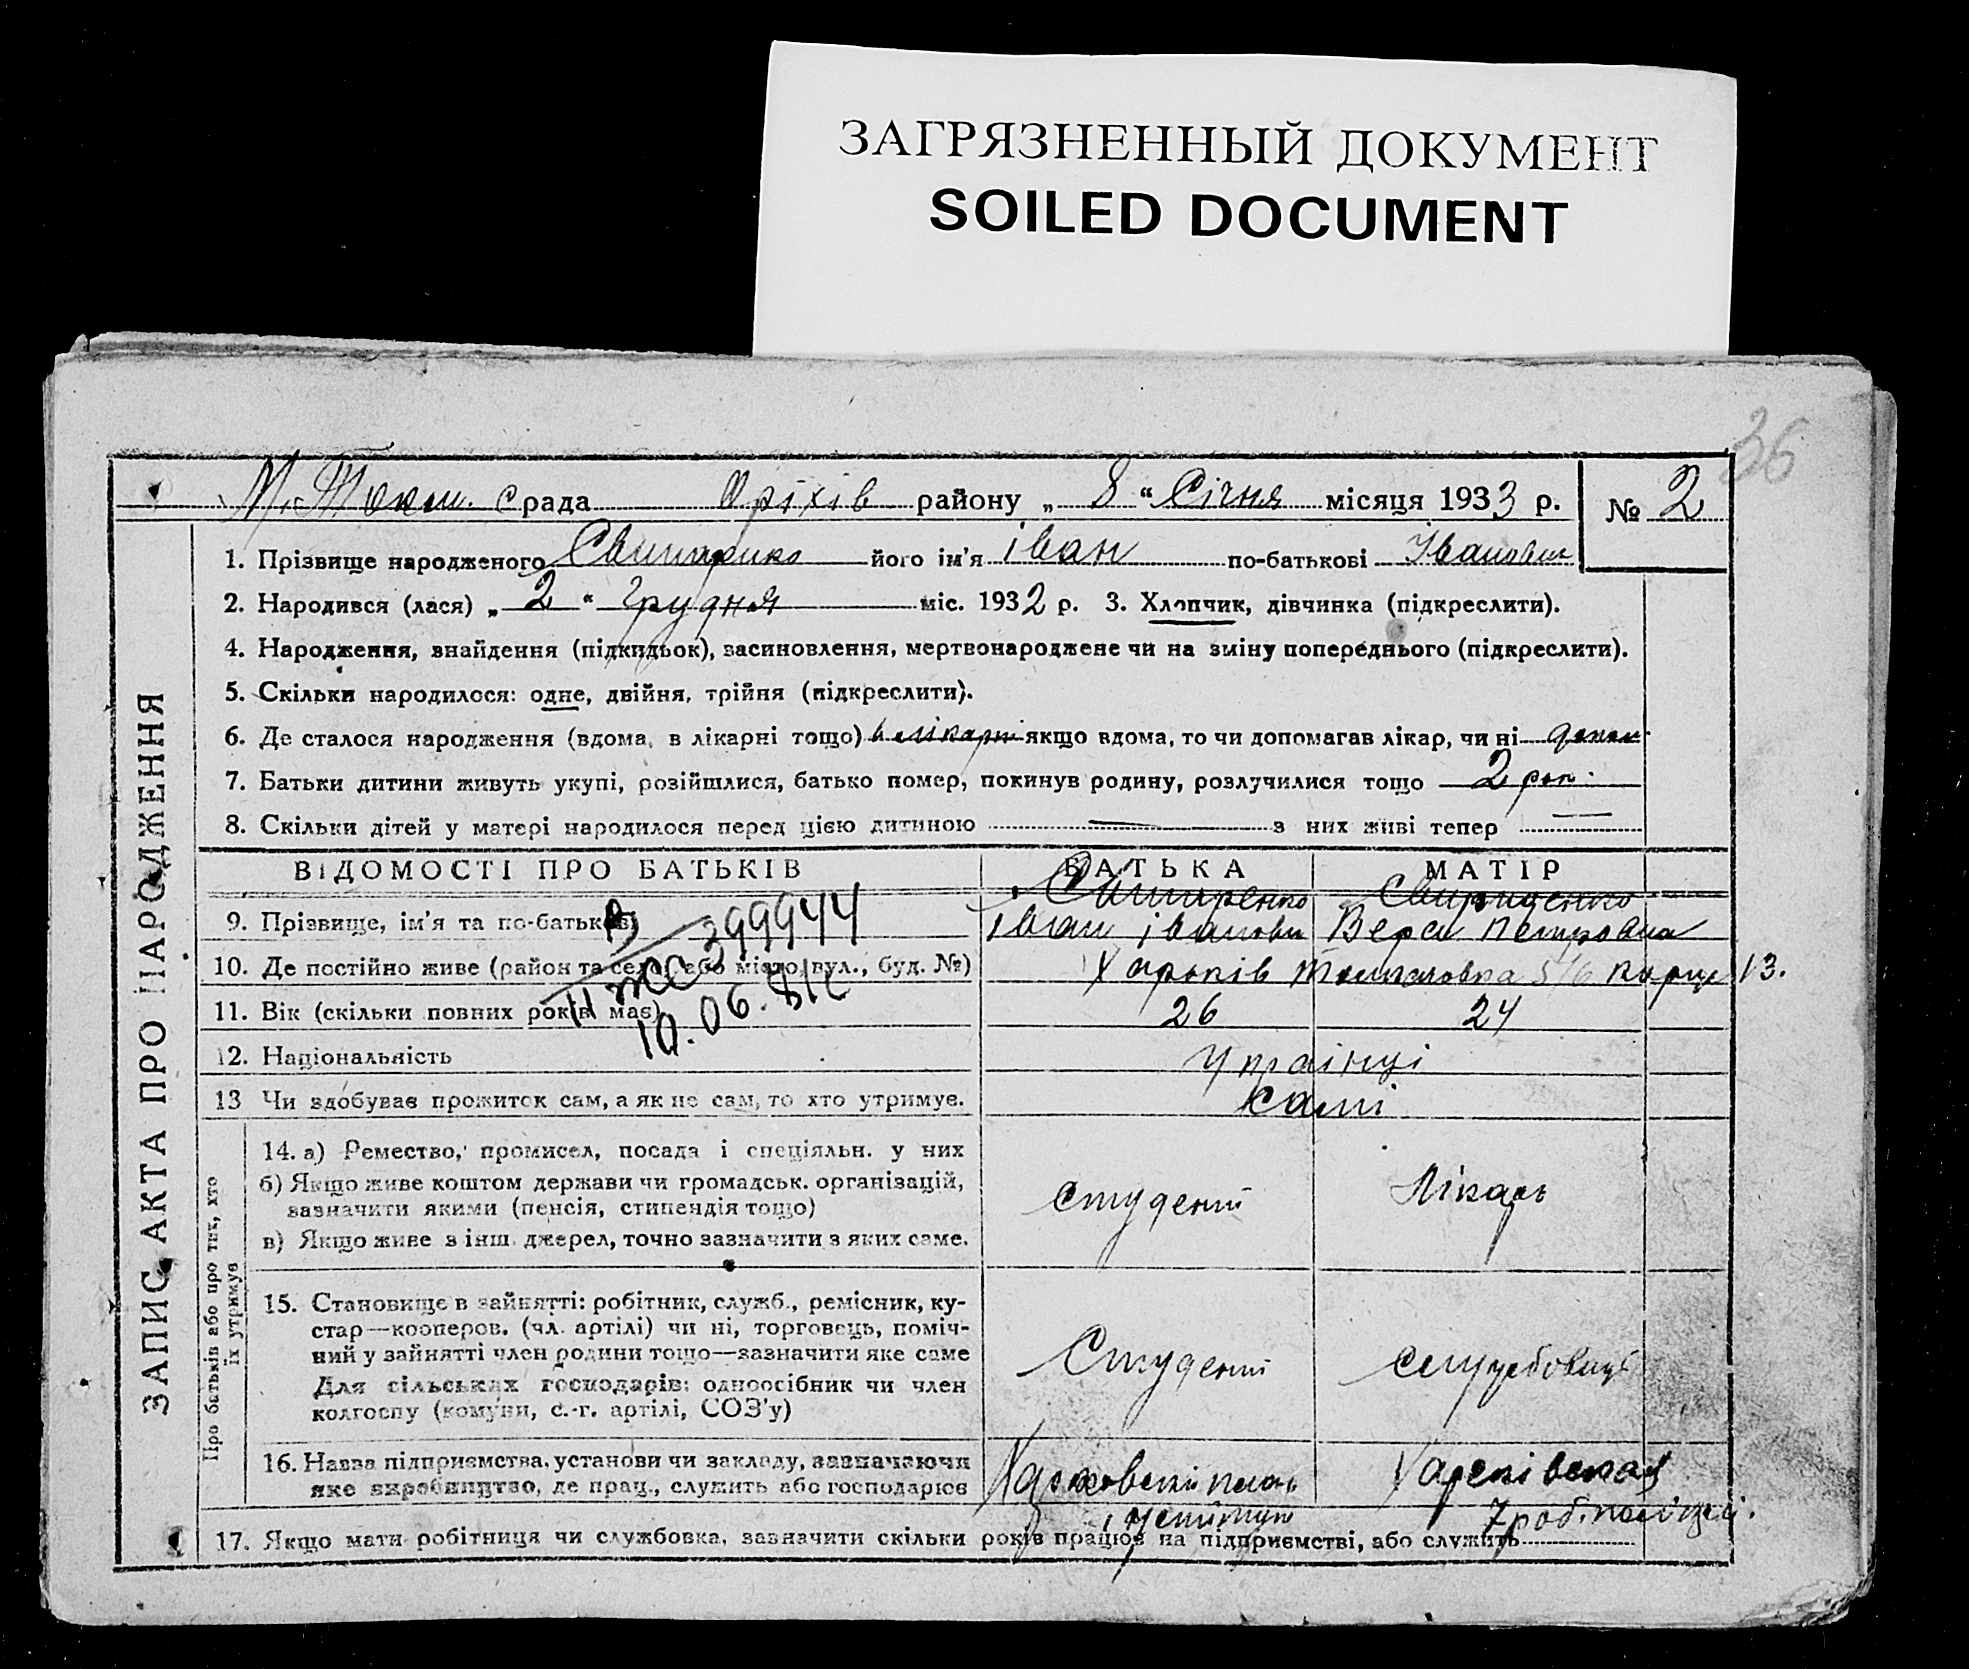 ЗАГРЯЗНЕННЫЙ ДОКУМЕНТ
SOILED DOCUMENT
36
М. Токм. срада Оріхів району „ 8 “ Січня місяця 1933 р. № 2
1. Прізвище народженого його ім'я іван по-батькові Іванович
2. Народився (лася) „ 2 “ Грудня міс. 1932 р. 3. Хлопчик, дівчинка (підкреслити).
4. Народження, знайдення (підкидьок), засиновлення, мертвонароджене чи на зміну попереднього (підкреслити).
5. Скільки народилося: одне, двійня, трійня (підкреслити).
6. Де сталося народження (вдома, в лікарні тощо) в лікарні якщо вдома, то чи допомагав лікар, чи ні
7. Батьки дитини живуть укупі, розійшлися, батько помер, покинув родину, розлучилися тощо 2 рок.
8. Скільки дітей у матері народилося перед цією дитиною — з них живі тепер —
ЗАПИС АКТА ПРО НАРОДЖЕННЯ
ВІДОМОСТІ ПРО БАТЬКІВ БАТЬКА МАТІР
9. Прізвище, ім'я та по-батькові іван іванович Вера Петровна
399944
10. Де постійно живе (район та село, або місто, вул., буд. №) Харьків 13.
10.06.
11. Вік (скільки повних років має) 26 24
12. Національність Українці
13 Чи здобуває прожиток сам, а як не сам, то хто утримує. сами
Про батьків або про тих, хто
їх утримує
14. а) Ремество, промисел, посада і спеціяльн. у них
б) Якщо живе коштом держави чи громадськ. організацій,
зазначити якими (пенсія, стипендія тощо)
в) Якщо живе з інш. джерел, точно зазначити з яких саме.
студент Лікарь
15. Становище в зайнятті: робітник, служб., ремісник, ку-
стар—кооперов. (чл. артілі) чи ні, торговець, поміч-
ний у зайнятті член родини тощо—зазначити яке саме
Для сільських господарів: одноосібник чи член
колгоспу (комуни, с.-г. артілі, СОЗ'у)
Студент службовиця
16. Назва підприємства, установи чи закладу, зазначаючи
яке виробництво, де прац., служить або господарює
Харківская
7 роб.
17. Якщо мати робітниця чи службовка, зазначити скільки років працює на підприємстві, або служить